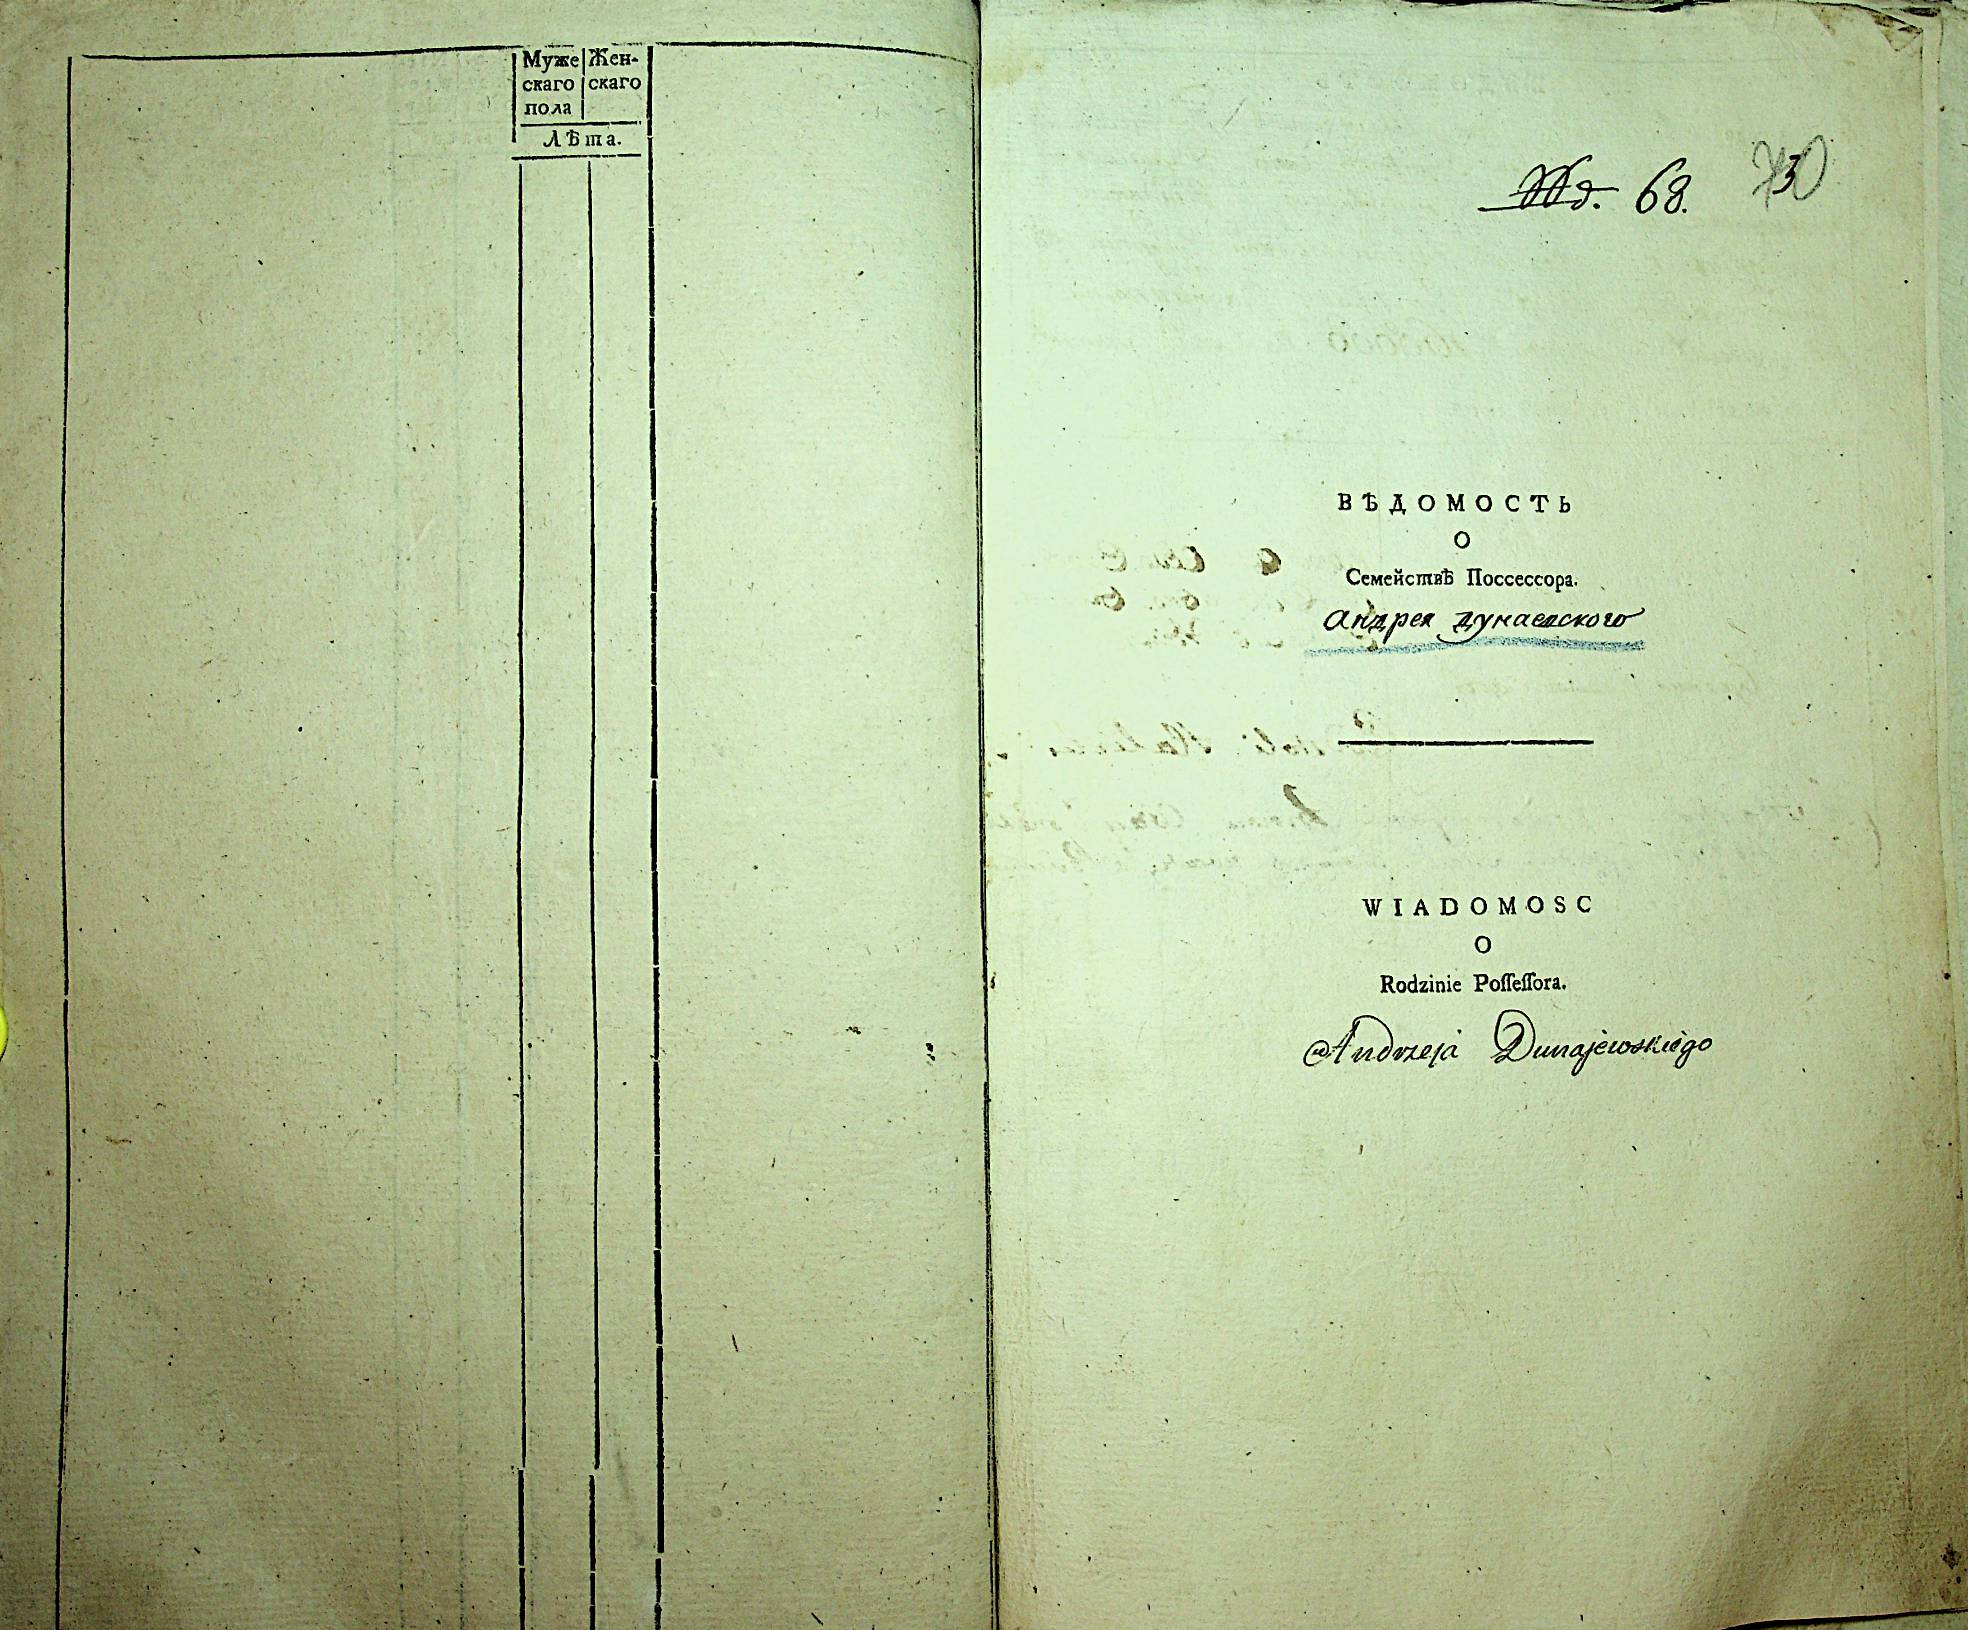 Муже Жен-
скаго скаго
пола
Лѣта.
68.
ВѢДОМОСТЬ
О
Семействѣ Поссессора.
Андрея Дунаевского
WIADOMOSC
O
Rodzinie Poſſeſſora.
Andrzeja Dunajewskiego